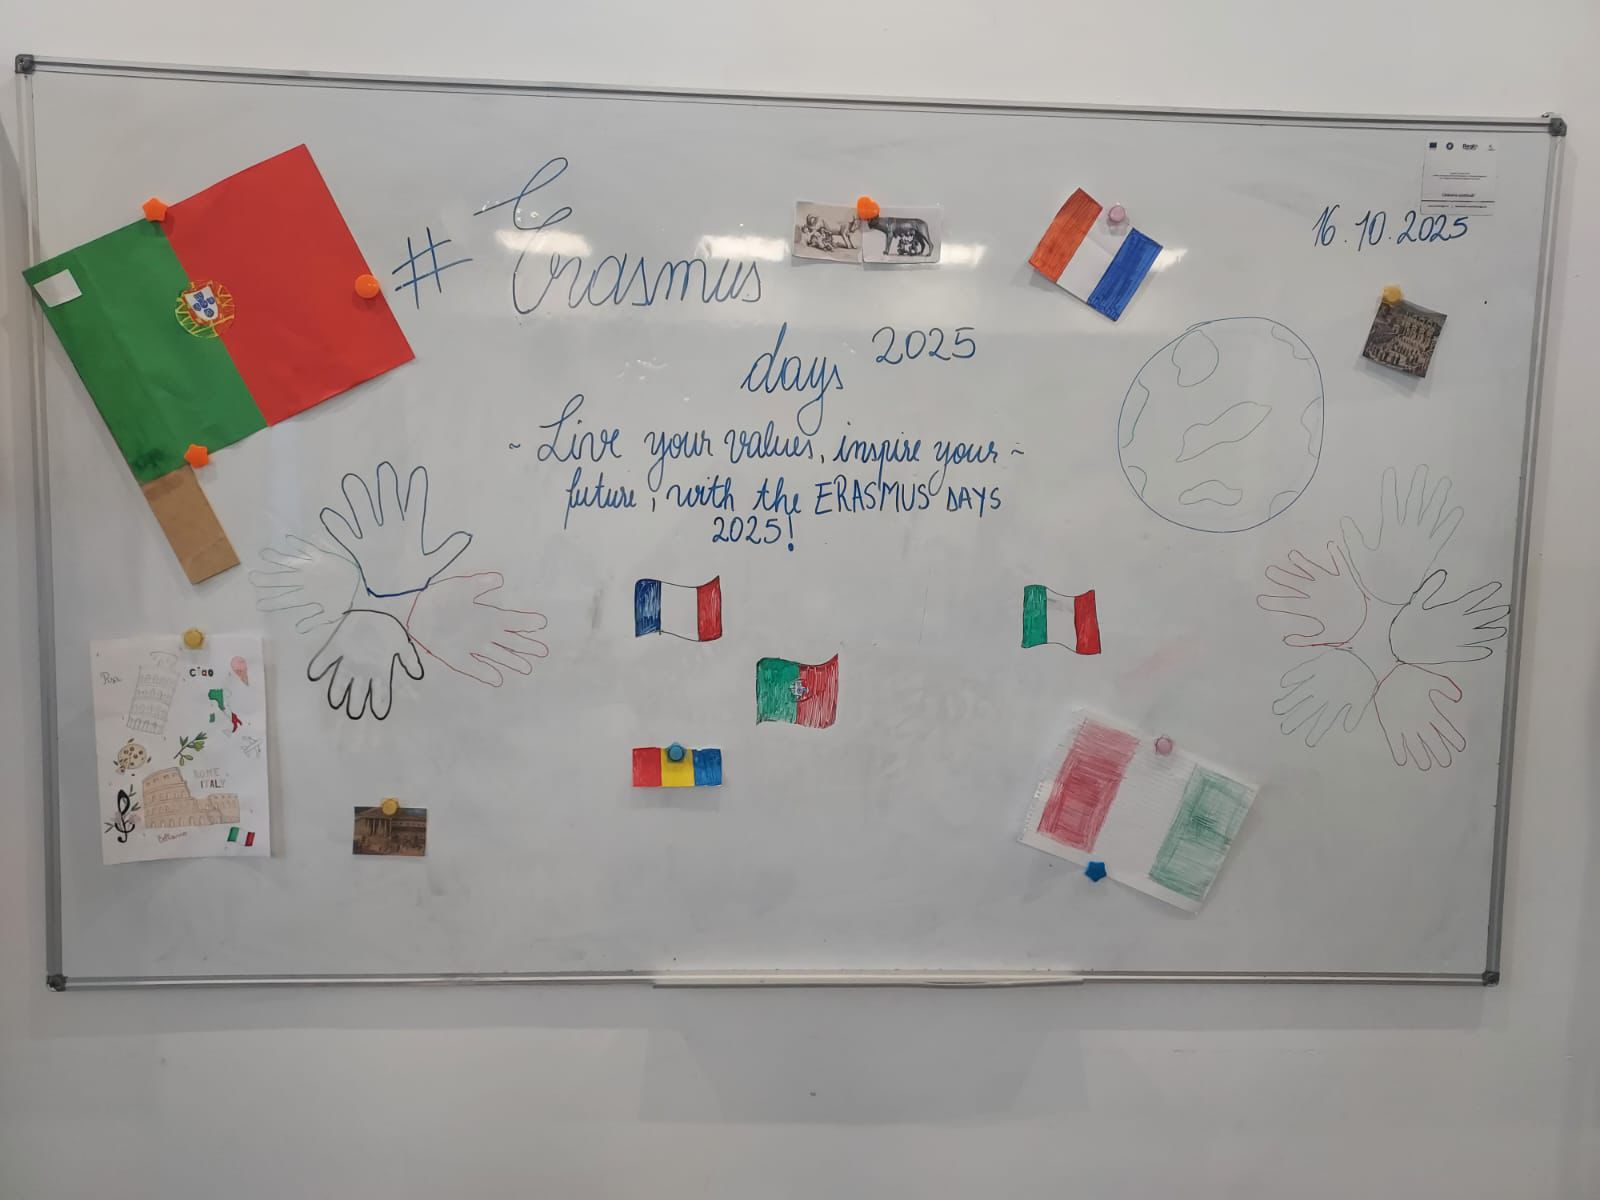 # Erasmus
16.10.2025
days 2025
~ Live your values, inspire your ~
future, with the ERASMUS DAYS
2025!
Pisa
ciao
ROME
ITALY